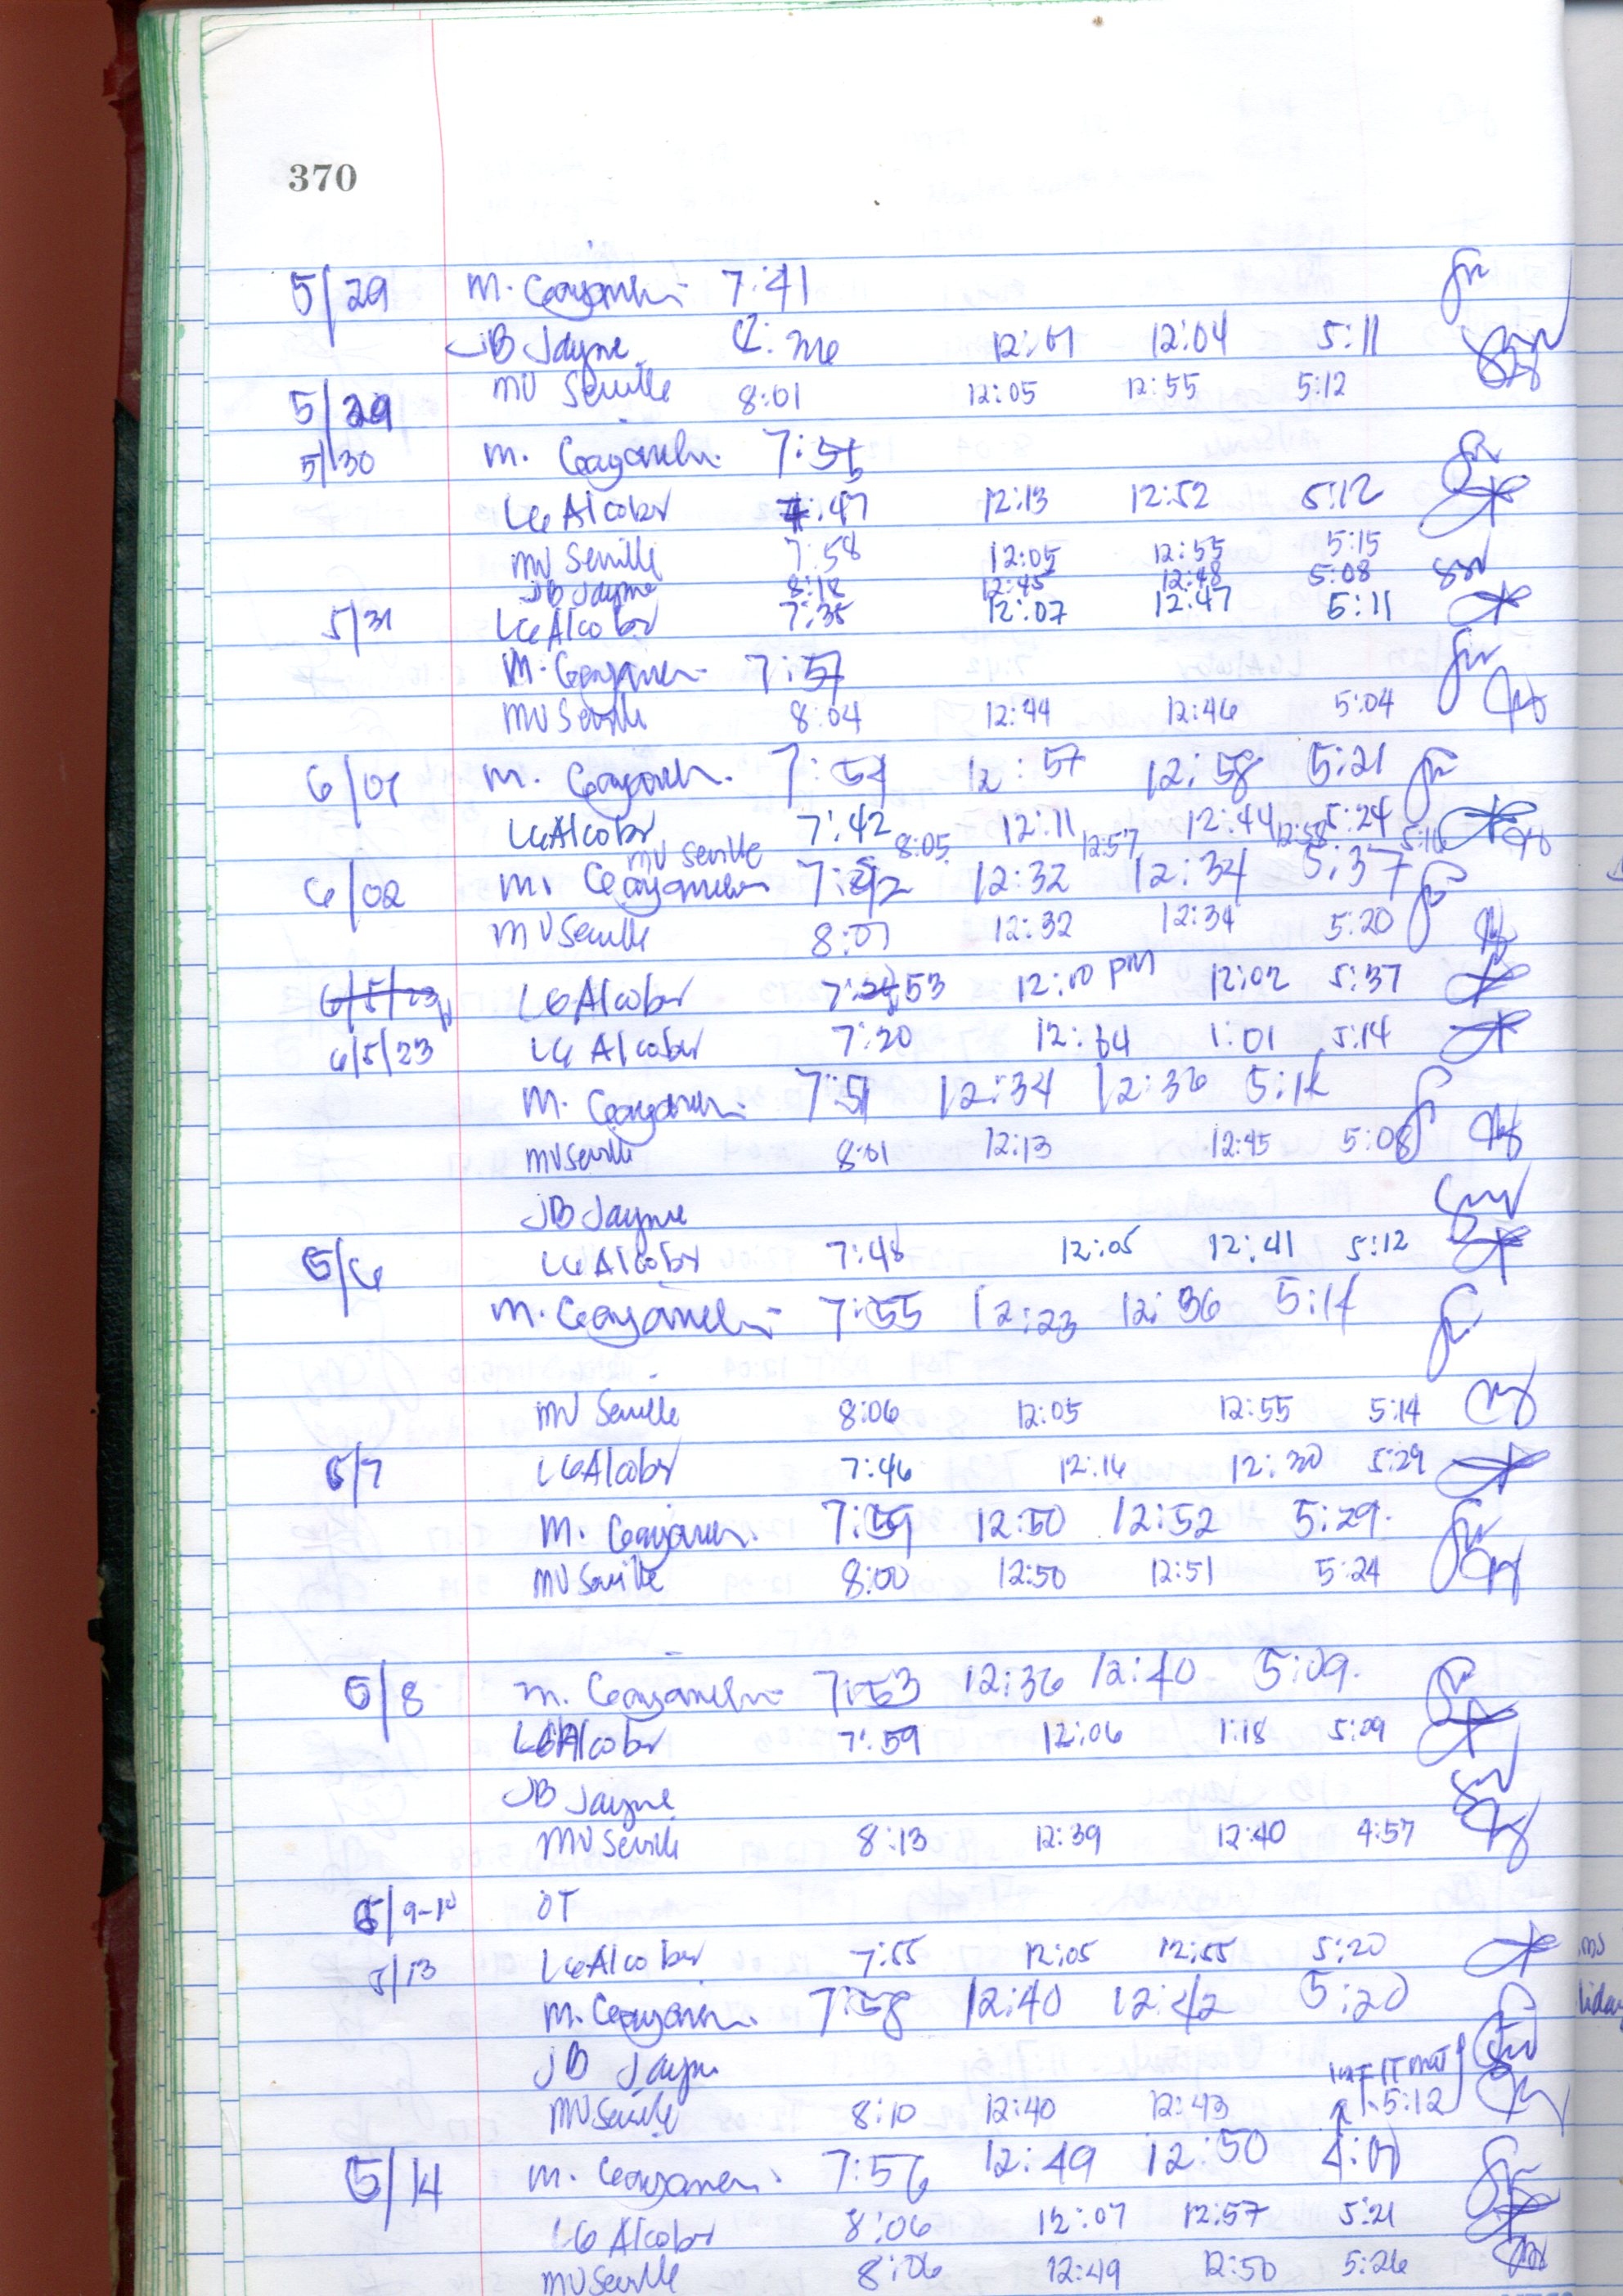 370
5/29 M. 7:41
JB Jayme 12:01 12:04 5:11
5/29 MV Seville 8:01 12:05 12:55 5:12
5/30 M.
LG Alcober 7:47 12:13 12:52 5:12
MV Seville 7:58 12:05 12:55 5:15
JB Jayme 8:18 12:45 12:48 5:08
5/31 LG Alcober 7:35 12:07 12:47 5:11
M. 7:57
MV Seville 8:04 12:44 12:46 5:04
6/01 M. 7:54 12:57 12:58 5:21
LG Alcober 7:42 12:11 12:44 5:24
MV Seville 8:05 12:57 12:58 5:16
6/02 M. 12:32 12:34 5:37
MV Seville 8:01 12:32 12:34 5:20
6/5/23 LG Alcober 7:53 12:10 PM 12:02 5:37
6/5/23 LG Alcober 7:20 1:01 5:14
M. 7:51 12:34 12:36
MV Seville 8:01 12:13 12:45 5:08
JB Jayme
6/6 LG Alcober 7:48 12:05 12:41 5:12
M. 7:55 12:23 12:36 5:14
MV Seville 8:06 12:05 12:55 5:14
6/7 LG Alcober 7:46 12:16 12:30 5:29
M. 7:59 12:50 12:52 5:29
MV Seville 8:00 12:50 12:51 5:24
6/8 M. 7:53 12:36 12:40 5:09
LG Alcober 7:59 12:06 1:18 5:09
JB Jayme
MV Seville 8:13 12:39 12:40 4:57
6/9-10 OT
5/13 LG Alcober 7:55 12:05 12:55 5:20
M. 7:58 12:40 12:42 5:20
JB Jayme
MV Seville 8:10 12:40 12:43 5:12
6/14 M. 7:56 12:49 12:50
LG Alcober 8:06 12:07 12:57 5:21
MV Seville 8:06 12:49 12:50 5:26